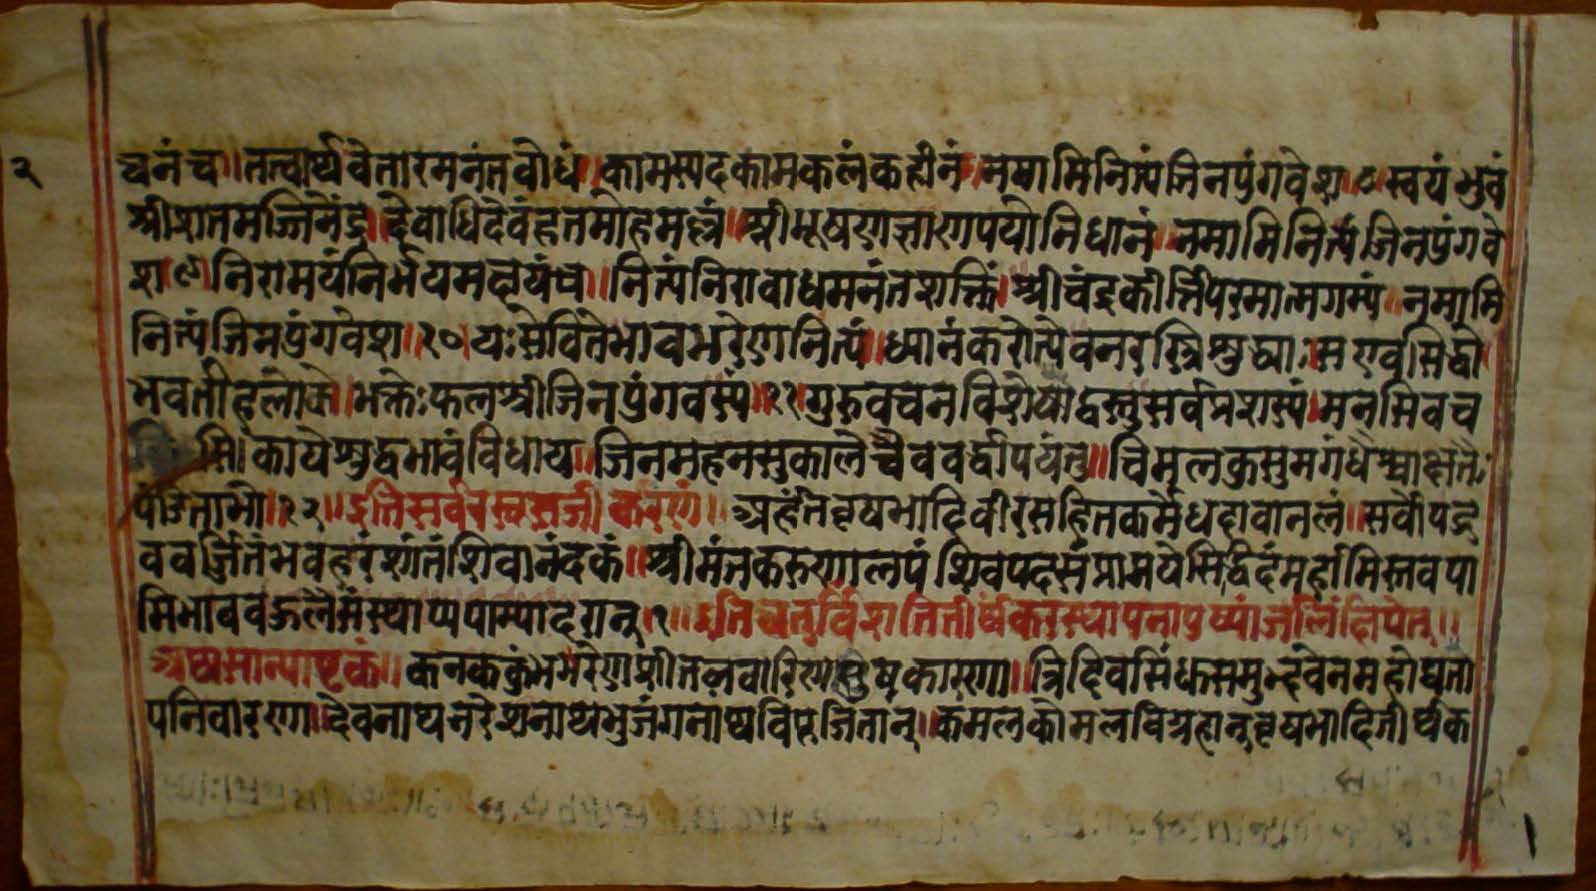 २
चनं च॥ तत्वार्थवेतारमनंतवोधं। कामस्पदकामकलंकहीनं॥ नमामिनित्यंजिनपुंगवेश।८ स्वयंभुवं
श्रीशातमजिनेंद्रं। देवाधिदेवंहतमोहमल्लं॥ श्रीभूषणज्ञाणपयोनिधानं॥ नमामिनित्यंजिनपुंगवे
श।९। निरामयंनिर्भयमक्षयंच॥ नित्यंनिरावाधमनंतशक्तिं। श्रीचंद्रकीर्त्तिपरमात्मगम्यं॥ नमामि
नित्यंजिनपुंगवेश॥१०। यःसेवितेभावभरेणनित्यं॥ ध्यानंकरोत्येवनरस्त्रिशुध्या। स एव सिद्धो
भवतीहलोके। भक्तेःफलश्रीजिनपुंगवस्य॥११। गुरुवचनविशेषाद्वस्तुसर्वप्रशस्यं। मनसिवच
सि। कायेशुद्धभावंविधाय॥ जिनमहनसुकालेचैववर्द्धापयंतु॥ विमलकुसुमगंधैश्चाक्षतैः
पंडिताभो॥१२॥ इति सर्वरस्वसजीकरणं॥ अर्हंतवृषभादिवीरसहितकर्मैधदावानलं॥ सर्वोपद्र
ववर्जितंभवहरंशंतंशिवानंदकं॥ श्रीमंतकरुणालयंशिवपदसंप्राप्तयेसिद्धिदंमर्हामिस्तवपा
मिभाववऊलैसंस्थाप्यपाम्पादगन्।१॥ इतिचतुर्विंशतितीर्थंकरस्थापनापुष्पांजलिंक्षिपेत्॥
अथसामान्याष्टकं॥ कनककुंभभरेणशीतलवारि कारणा॥ त्रिदिवसिंधुसमुद्भवेनमहोघता
पनिवारणा॥ देवनाथनरेशनाथभुजंगनाथविपूजितान्। कमलकोमलविग्रहान्वृषभादितीर्थक